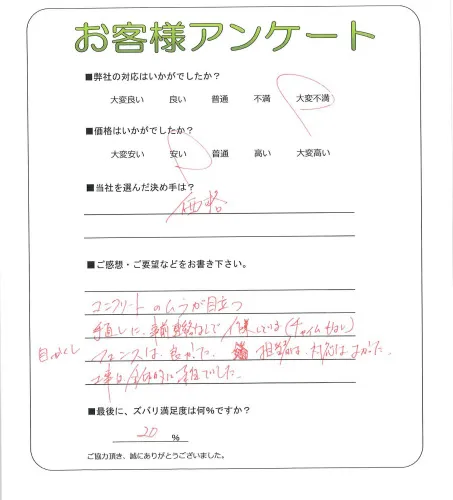 お客様アンケート
■弊社の対応はいかがでしたか?
大変良い 良い 普通 不満 大変不満
■価格はいかがでしたか?
大変安い 安い 普通 高い 大変高い
■当社を選んだ決め手は?
価格
■ご感想・ご要望などをお書き下さい。
コンクリートのムラが目立つ
手直しに、事前連絡なしで 作業している(チャイムなし)
目かくし フェンスは、良かった。 担当者は、対応はよかった。
工事は全体的に 雑でした。
■最後に、ズバリ満足度は何%ですか?
20 %
ご協力頂き、誠にありがとうございました。